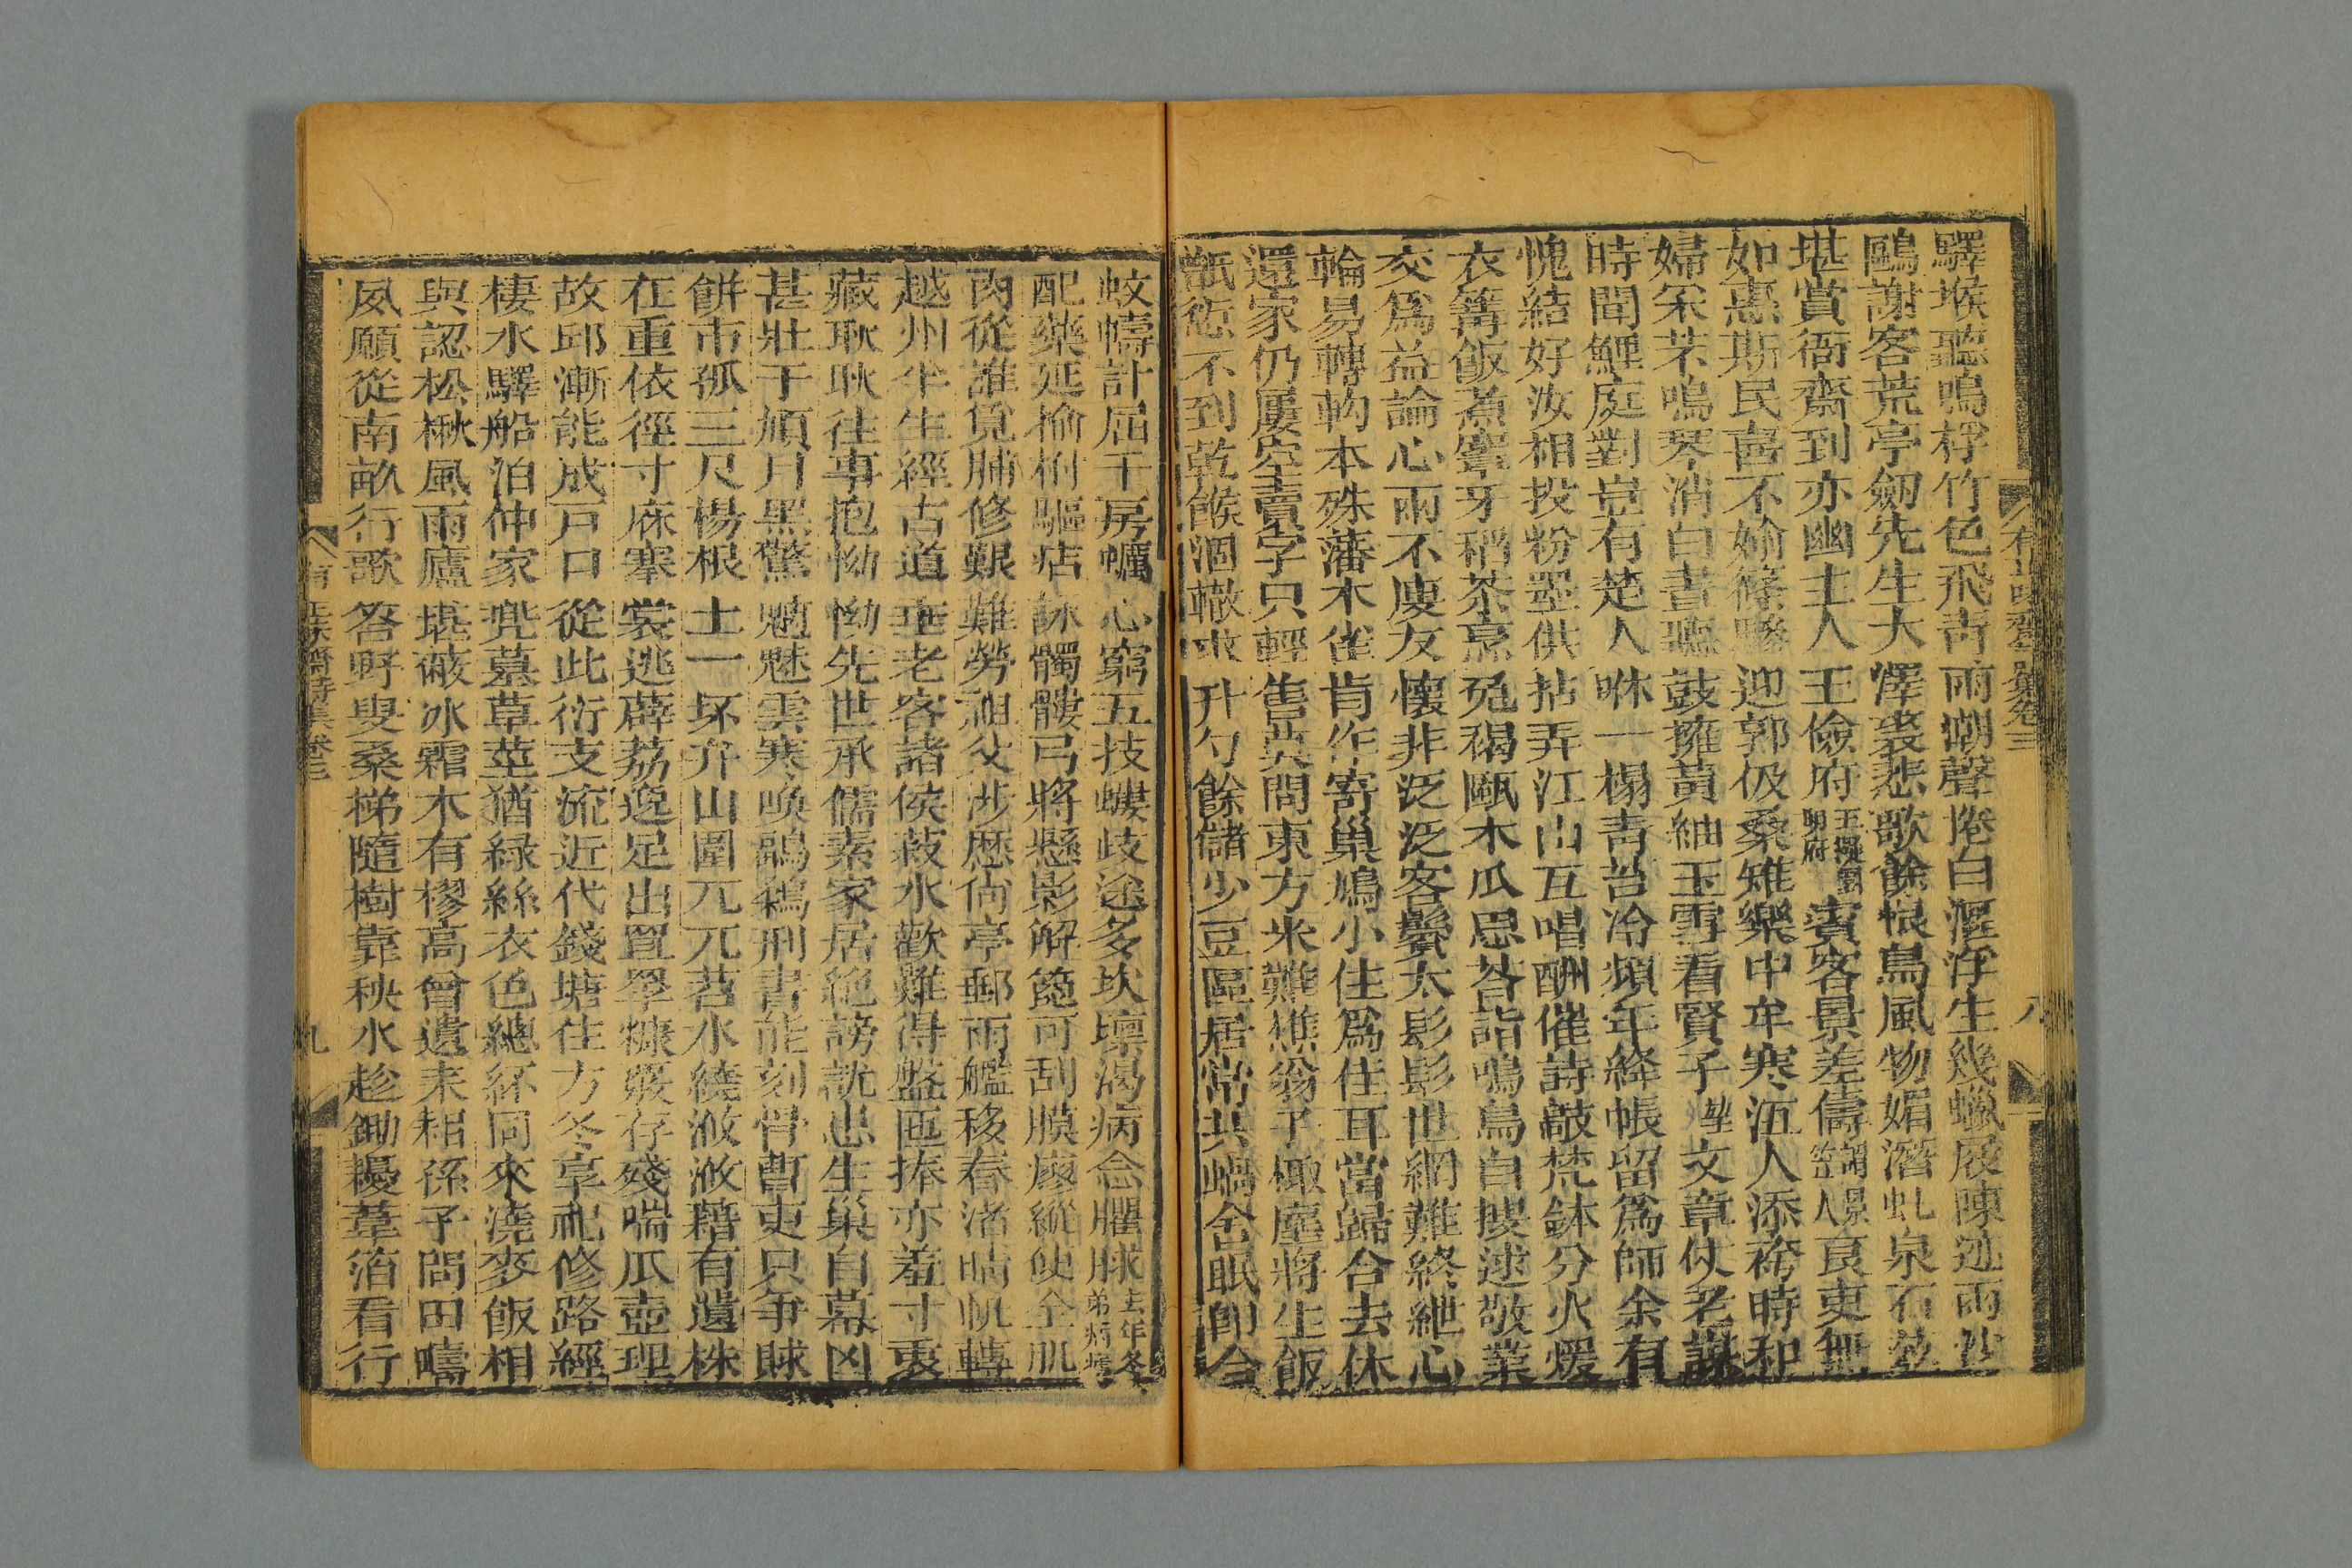 驛堠聽鳴桴竹色飛青雨潮聲捲白漚浮生幾蠟屐陳迹兩
鷗謝客荒亭劒先生大澤裘悲歌餘恨鳥風物媚潛虬泉石
堪賞衙齋到亦幽主人王儉府明府賓客景差儔笠人良吏無
如惠斯民喜不媮篠驂迎郭伋桑雉樂中牟寒沍人添袴時和
婦采芣鳴琴消白晝聽鼓擁黃紬玉雪看賢子文章仗老謀
時聞鯉庭對豈有楚人咻一榻青苔冷頻年絳帳留爲師余有
愧結好汝相投粉墨供拈弄江山互唱酬催詩敲梵鉢分火煖
衣篝飯煮窶牙稻茶烹兔褐甌木瓜思答詣鳴鳥自搜逑敬業
交爲益論心雨不廋友懷非泛泛客鬢太髟髟世網難終紲心
輪易轉軥本殊藩木雀肯作寄巢鳩小住爲佳耳當歸合去休
還家仍屢空賣字只輕售臾問東方米難煹翁子橄塵將生飯
甑慙不到乾餱涸轍求升勺餘儲少豆區居常共蝸舍眠卽合
八
蚊幬計屈干房蠣心窮五技螻歧途多坎壈渴病念臞脙去年冬
弟病瘧
配藥延揄柎驅痁詠髑髏弓將懸影解箆可刮膜瘳縱使全肌
肉從誰覓脯修艱難勞祖父涉歷倘亭郵雨艦移春渚晴帆轉
越州半生經古道垂老客諸侯菽水歡難得盤匜捧亦羞寸衷
藏耿耿往事抱怮怮先世承儒素家居絕謗訧忠生巢自幕凶
甚壯于頄月黑驚魑魅雲寒喚鵑鶹刑書能刻骨曹吏只爭賕
餅市孤三尺楊根土一抔弁山圍兀兀苕水繞浟浟藉有遺株
在重依徑寸庥褰裳逃薜荔逸足出罝罘糠覈存殘喘瓜壺理
故邱漸能成戸口從此衍支流近代錢塘住方冬享祀修路經
棲水驛船泊仲家兠墓草莖猶緑絲衣色總紑同來澆麥飯相
與認松楸風雨廬堪蔽冰霜木有樛高曾遺耒耜孫子問田疇
夙願從南畝行歌答野叟桑梯隨樹靠秧水趁鋤耰葦箔看行
有正味齋詩集卷三
九